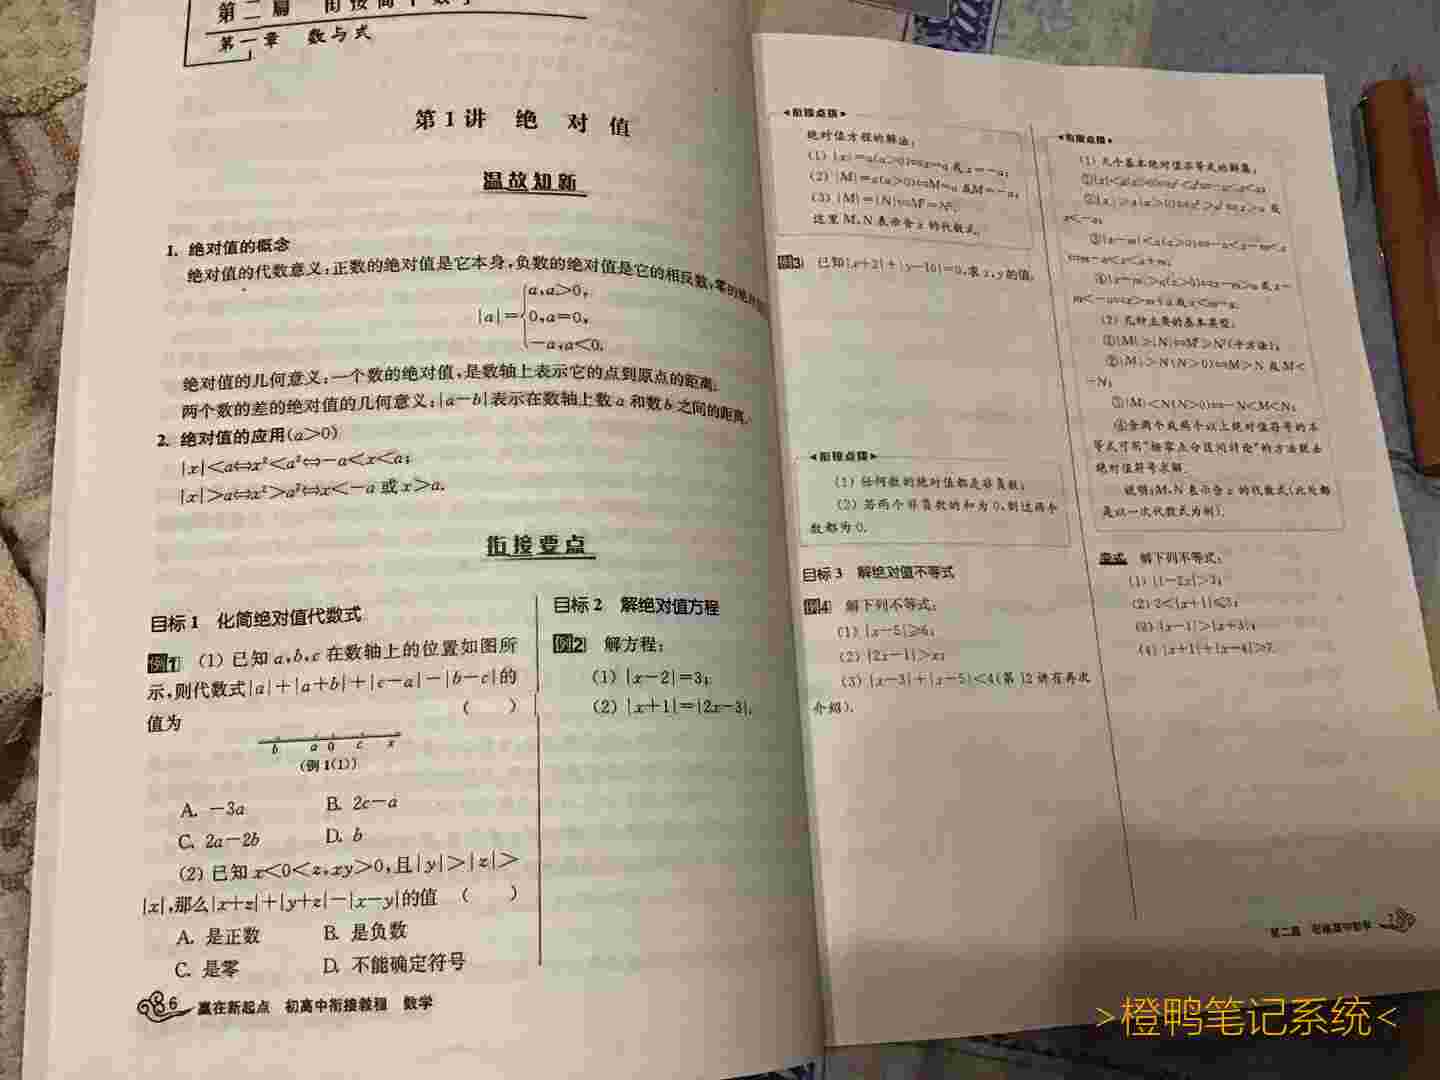 第二篇 衔接高中数学
第一章 数与式
第1讲 绝对值
温故知新
1. 绝对值的概念
绝对值的代数意义:正数的绝对值是它本身,负数的绝对值是它的相反数,零的绝对
|a|={a,a>0,
0,a=0,
-a,a<0.
绝对值的几何意义:一个数的绝对值,是数轴上表示它的点到原点的距离.
两个数的差的绝对值的几何意义:|a-b|表示在数轴上数a和数b之间的距离.
2. 绝对值的应用(a>0)
|x|<a⇔x²<a²⇔-a<x<a;
|x|>a⇔x²>a²⇔x<-a或x>a.
衔接要点
目标1 化简绝对值代数式
例1 (1)已知a,b,c在数轴上的位置如图所
示,则代数式|a|+|a+b|+|c-a|-|b-c|的
值为 ( )
b a 0 c x
(例1(1))
A. -3a B. 2c-a
C. 2a-2b D. b
(2)已知x<0<z,xy>0,且|y|>|z|>
|x|,那么|x+z|+|y+z|-|x-y|的值 ( )
A. 是正数 B. 是负数
C. 是零 D. 不能确定符号
6 赢在新起点 初高中衔接教程 数学
目标2 解绝对值方程
例2 解方程:
(1)|x-2|=3;
(2)|x+1|=|2x-3|.
衔接点拨
绝对值方程的解法:
(1)|x|=a(a>0)⇔x=a或x=-a;
(2)|M|=a(a>0)⇔M=a或M=-a;
(3)|M|=|N|⇔M²=N².
这里M,N表示含x的代数式.
例3 已知|x+2|+|y-10|=0,求x,y的值.
衔接点拨
(1)任何数的绝对值都是非负数;
(2)若两个非负数的和为0,则这两个
数都为0.
目标3 解绝对值不等式
例4 解下列不等式:
(1)|x-5|≥6;
(2)|2x-1|>x;
(3)|x-3|+|x-5|<4(第12讲有再次
介绍).
衔接点拨
(1)几个基本绝对值不等式的解集:
①|x|<a(a>0)⇔x²<a²⇔-a<x<a;
②|x|>a(a>0)⇔x²>a²⇔x>a或
x<-a;
③|x-m|<a(a>0)⇔-a<x-m<a
⇔m-a<x<a+m;
④|x-m|>a(a>0)⇔x-m>a或x-
m<-a⇔x>m+a或x<m-a.
(2)几种主要的基本类型:
①|M|>|N|⇔M²>N²(平方法);
②|M|>N(N>0)⇔M>N或M<
-N;
③|M|<N(N>0)⇔-N<M<N;
④含两个或两个以上绝对值符号的不
等式可用“按零点分区间讨论”的方法脱去
绝对值符号求解.
说明:M,N表示含x的代数式(此处都
是以一次代数式为例).
变式 解下列不等式:
(1)|1-2x|>3;
(2)2<|x+1|≤3;
(3)|x-1|>|x+3|;
(4)|x+1|+|x-4|≥7.
第二篇 衔接高中数学 7
>橙鸭笔记系统<